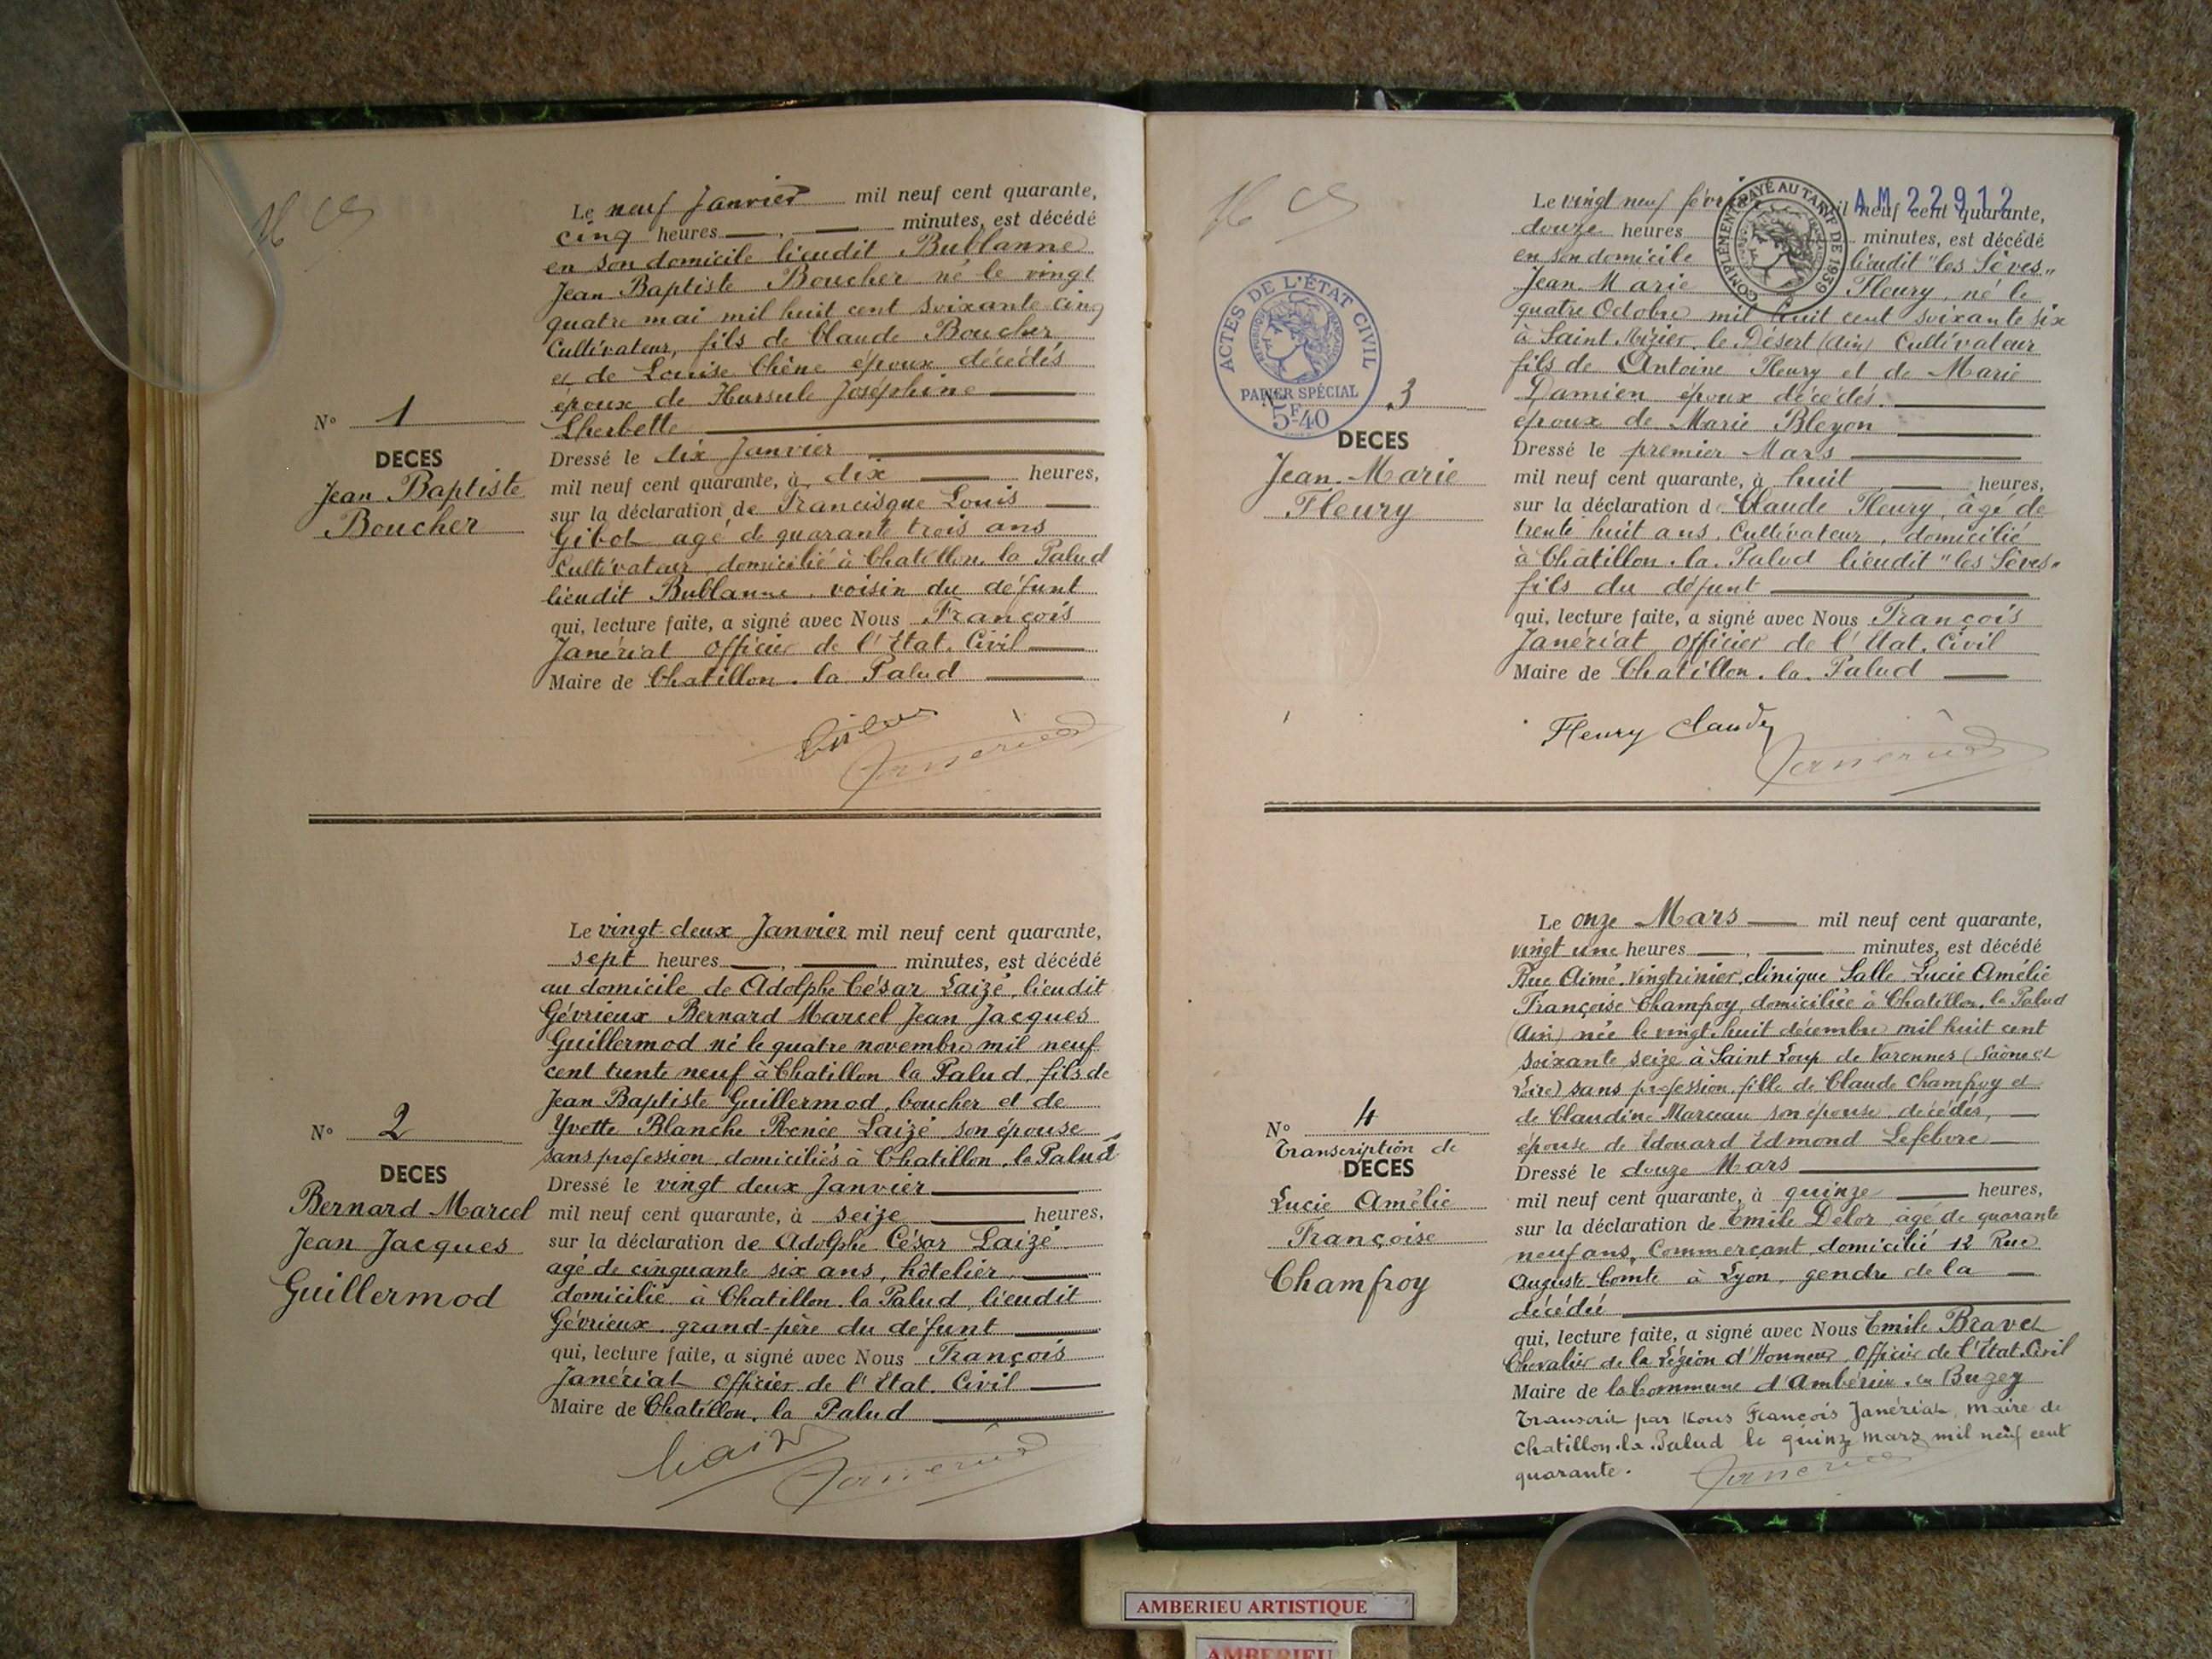 Le neuf Janvier mil neuf cent quarante,
cinq heures , minutes, est décédé
en son domicile lieudit Bublanne
Jean Baptiste Boucher né le vingt
quatre mai mil huit cent soixante cinq
Cultivateur, fils de Claude Boucher
et de Louise Chêne époux décédés
époux de Hursule Joséphine
Lherbette
N° 1
DECES
Jean Baptiste
Boucher
Dressé le dix Janvier
mil neuf cent quarante, à dix heures,
sur la déclaration de Francisque Louis
Gibot agé de quarante trois ans
Cultivateur, domicilié à Chatillon la Palud
lieudit Bublanne, voisin du défunt
qui, lecture faite, a signé avec Nous François
Janériat Officier de l'Etat. Civil
Maire de Chatillon. la Palud
Janériat
Le vingt-deux Janvier mil neuf cent quarante,
sept heures , minutes, est décédé
au domicile de Adolphe César Laizé, lieudit
Gévrieux Bernard Marcel Jean Jacques
Guillermod né le quatre novembre mil neuf
cent trente neuf à Chatillon la Palud, fils de
Jean Baptiste Guillermod, boucher et de
Yvette Blanche Renée Laizé son épouse
sans profession, domiciliés à Chatillon. la Palud
N° 2
DECES
Bernard Marcel
Jean Jacques
Guillermod
Dressé le vingt deux Janvier
mil neuf cent quarante, à seize heures,
sur la déclaration de Adolphe César Laizé
agé de cinquante six ans, hôtelier,
domicilié à Chatillon la Palud, lieudit
Gévrieux grand-père du défunt
qui, lecture faite, a signé avec Nous François
Janériat Officier de l'Etat. Civil
Maire de Chatillon. la Palud
Laizé
Janériat
Le vingt neuf février mil neuf cent quarante,
AM 22912
douze heures minutes, est décédé
en son domicile lieudit "les Sèves"
Jean. Marie Fleury, né le
quatre Octobre mil huit cent soixante six
à Saint Nizier. le Désert (Ain) Cultivateur
fils de Antoine Fleury et de Marie
Damien époux décédés.
époux de Marie Bleyon
COMPLÉMENT PAYÉ AU TARIF DE 1939
ACTES DE L'ÉTAT CIVIL
RÉPUBLIQUE FRANÇAISE
PAPIER SPÉCIAL
5F40
3
DECES
Jean-Marie
Fleury
Dressé le premier Mars
mil neuf cent quarante, à huit heures,
sur la déclaration de Claude Fleury, âgé de
trente huit ans, Cultivateur, domicilié
à Chatillon. la. Palud lieudit "les Sèves"
fils du défunt
qui, lecture faite, a signé avec Nous François
Janériat Officier de l'Etat. Civil
Maire de Chatillon. la. Palud
Fleury Claude
Janériat
Le onze Mars mil neuf cent quarante,
vingt une heures , minutes, est décédé
Rue Aimé Vingtrinier, clinique Salle, Lucie Amélie
Françoise Chamfroy, domiciliée à Chatillon. la Palud
(Ain) née le vingt-huit décembre mil huit cent
soixante seize à Saint Loup de Varennes (Saône et
Loire) sans profession, fille de Claude Chamfroy et
de Claudine Marceau son épouse, décédés,
épouse de Edouard Edmond Lefebvre
N° 4
Transcription de
DECES
Lucie Amélie
Françoise
Chamfroy
Dressé le douze Mars
mil neuf cent quarante, à quinze heures,
sur la déclaration de Emile Delor, âgé de quarante
neuf ans, Commerçant, domicilié 12 Rue
Auguste Comte à Lyon, gendre de la
décédée
qui, lecture faite, a signé avec Nous Emile Bravet
Chevalier de la Légion d'Honneur, Officier de l'Etat. Civil
Maire de la Commune d'Ambérieu. en Bugey
Transcrit par Nous François Janériat, maire de
Chatillon. la. Palud le quinze mars mil neuf cent
quarante.
Janériat
AMBERIEU ARTISTIQUE
AMBERIEU